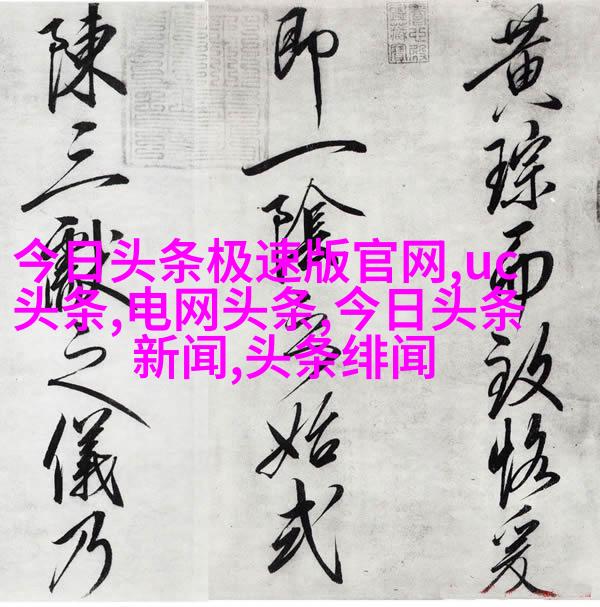 黄琮而致恪爰
即一陰之始式
陳三獻之儀乃
今日头条极速版官网,uc
头条,电网头条,今日头条
新闻,头条绯闻